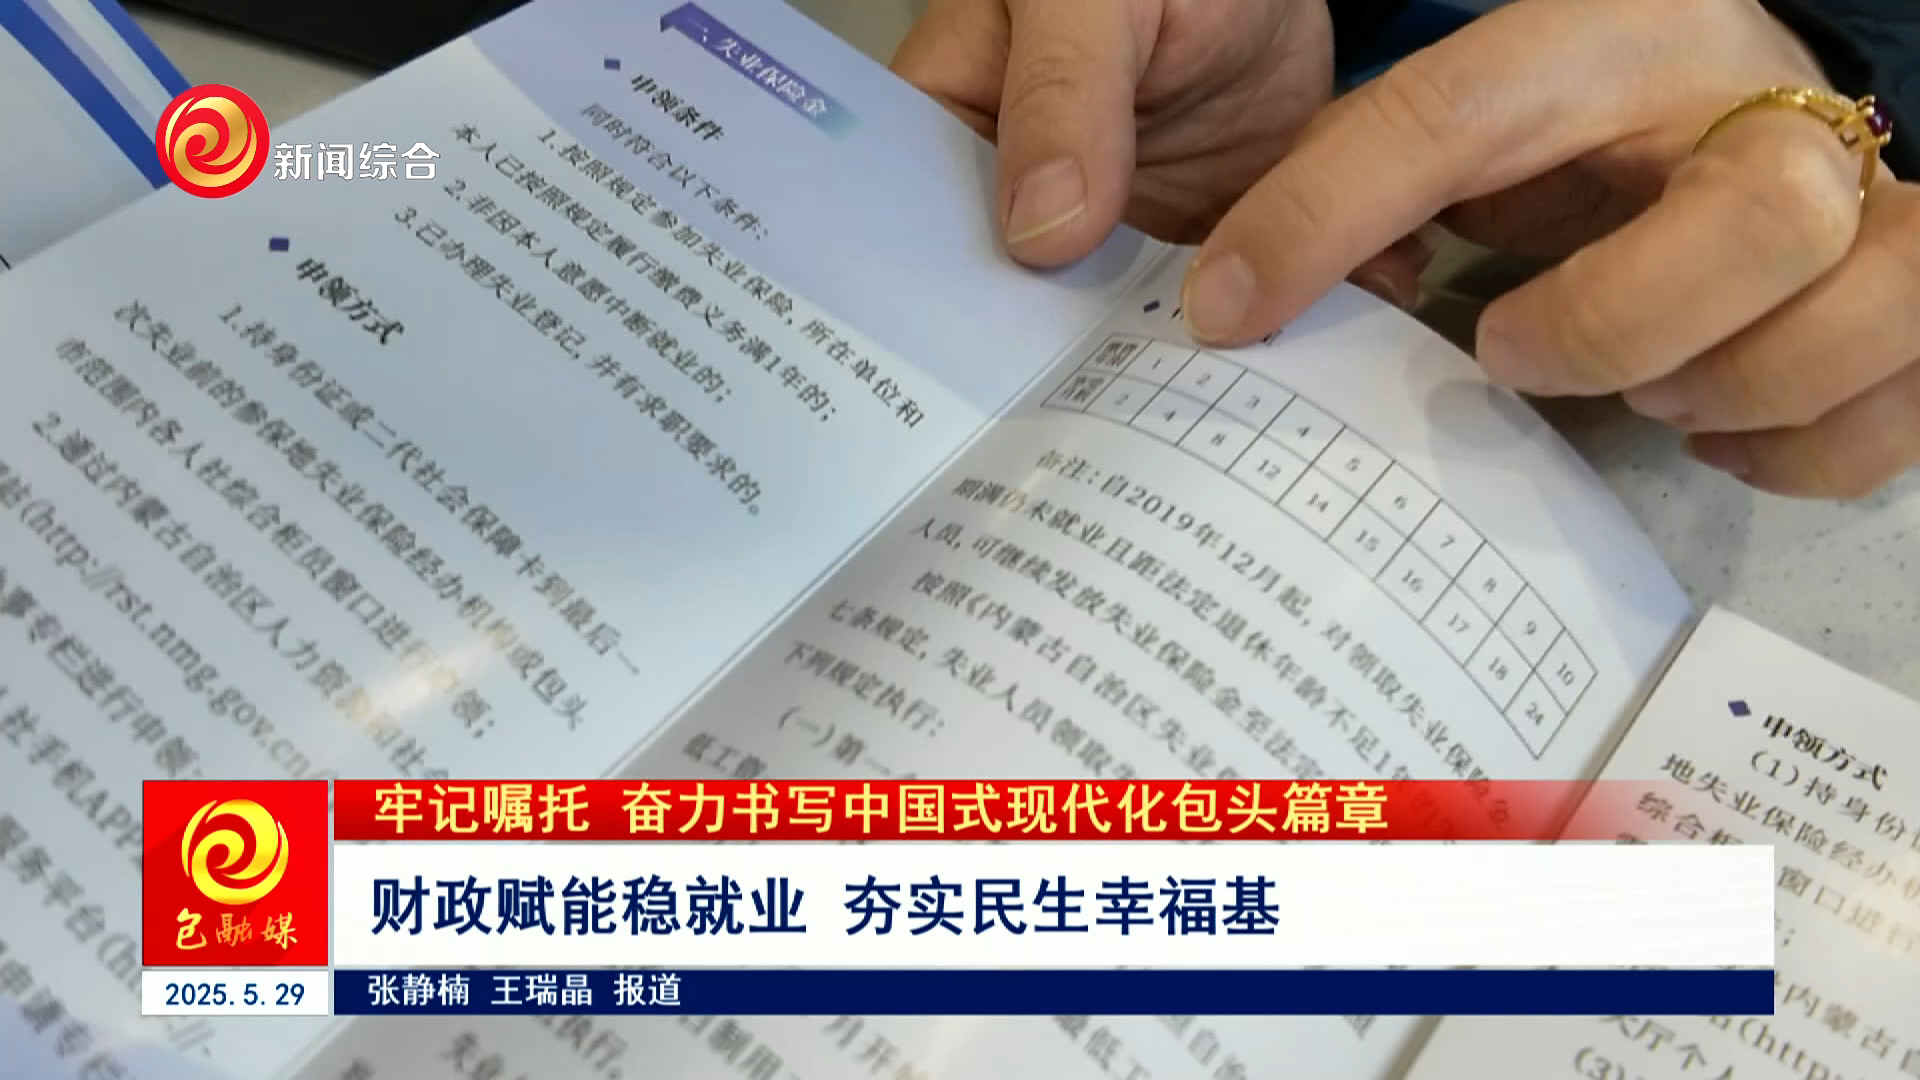 新闻综合
一、失业保险金
申领条件
同时符合以下条件：
1.按照规定参加失业保险，所在单位和
本人已按照规定履行缴费义务满1年的；
2.非因本人意愿中断就业的；
3.已办理失业登记，并有求职要求的。
申领方式
1.持身份证或二代社会保障卡到最后一
次失业前的参保地失业保险经办机构或包头
市范围内各人社综合柜员窗口进行申领；
2.通过内蒙古自治区人力资源和社会
(http://rst.nmg.gov.cn/
事专栏进行申领；
社手机APP
服务平台(ht
申请专栏
1 2 3 4 5 6 7 8 9 10
2 4 8 12 14 15 16 17 18 24
备注：自2019年12月起，对领取失业保险金
期满仍未就业且距法定退休年龄不足1年的
人员，可继续发放失业保险金至法定
按照《内蒙古自治区失业
七条规定，失业人员领取失
下列规定执行：
(一)第一个
低工资
执行。
申领方式
(1)持身份证
地失业保险经办机
综合柜 窗口进行
内蒙古自
大厅个人
(3)
牢记嘱托 奋力书写中国式现代化包头篇章
包融媒
财政赋能稳就业 夯实民生幸福基
2025.5.29
张静楠 王瑞晶 报道